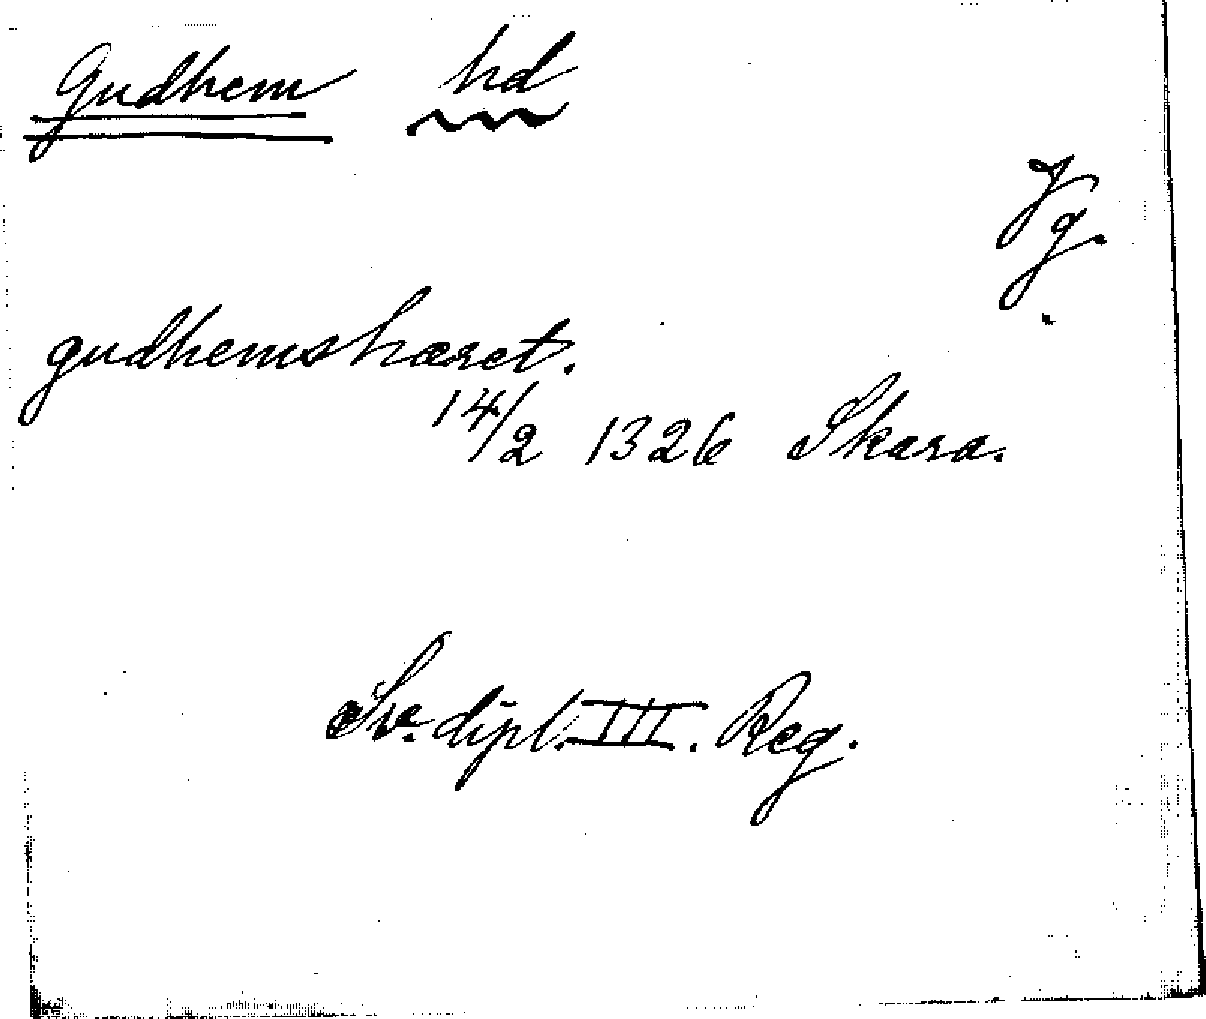 Gudhem hd
Vg.
gudhemshæret.
14/2 1326 Skara.
Sve. dipl. III. Reg.